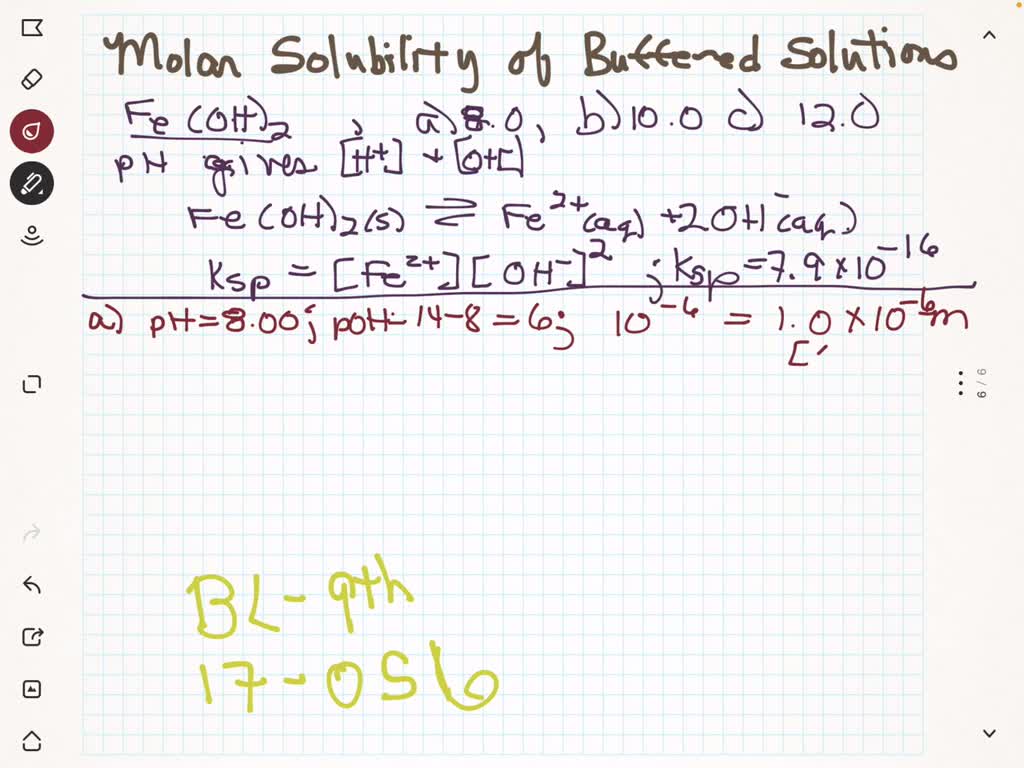 Molar Solubility of Buffered Solutions
Fe(OH)2 , a) 8.0, b) 10.0 c) 12.0
pH gives [H+] + [OH-]
Fe(OH)2(s) ⇌ Fe2+(aq) + 2OH-(aq)
Ksp = [Fe2+][OH-]2 ; Ksp = 7.9 × 10-16
a) pH = 8.00; pOH - 14 - 8 = 6; 10-6 = 1.0 × 10-6 m
[
6/9
BL - 9th
17 - 056